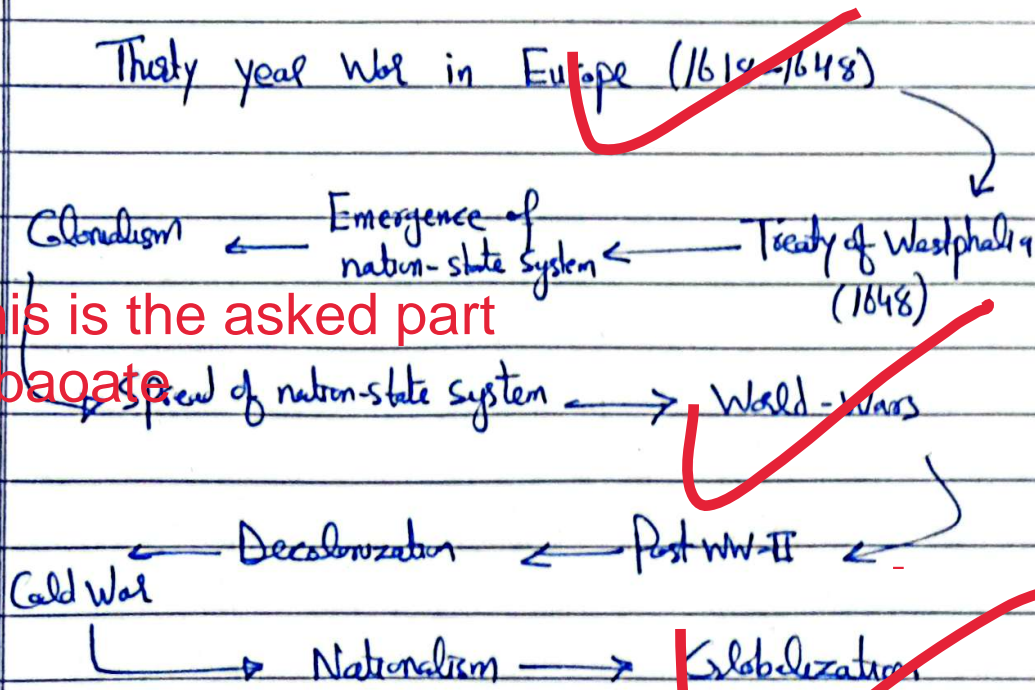 Thirty year War in Europe (1618-1648)
Colonialism ← Emergence of nation-state system ← Treaty of Westphalia
(1648)
is is the asked part
baoate
Spread of nation-state system → World-Wars
← Decolonization ← Post WW-II ←
Cold War
Nationalism → Globalization